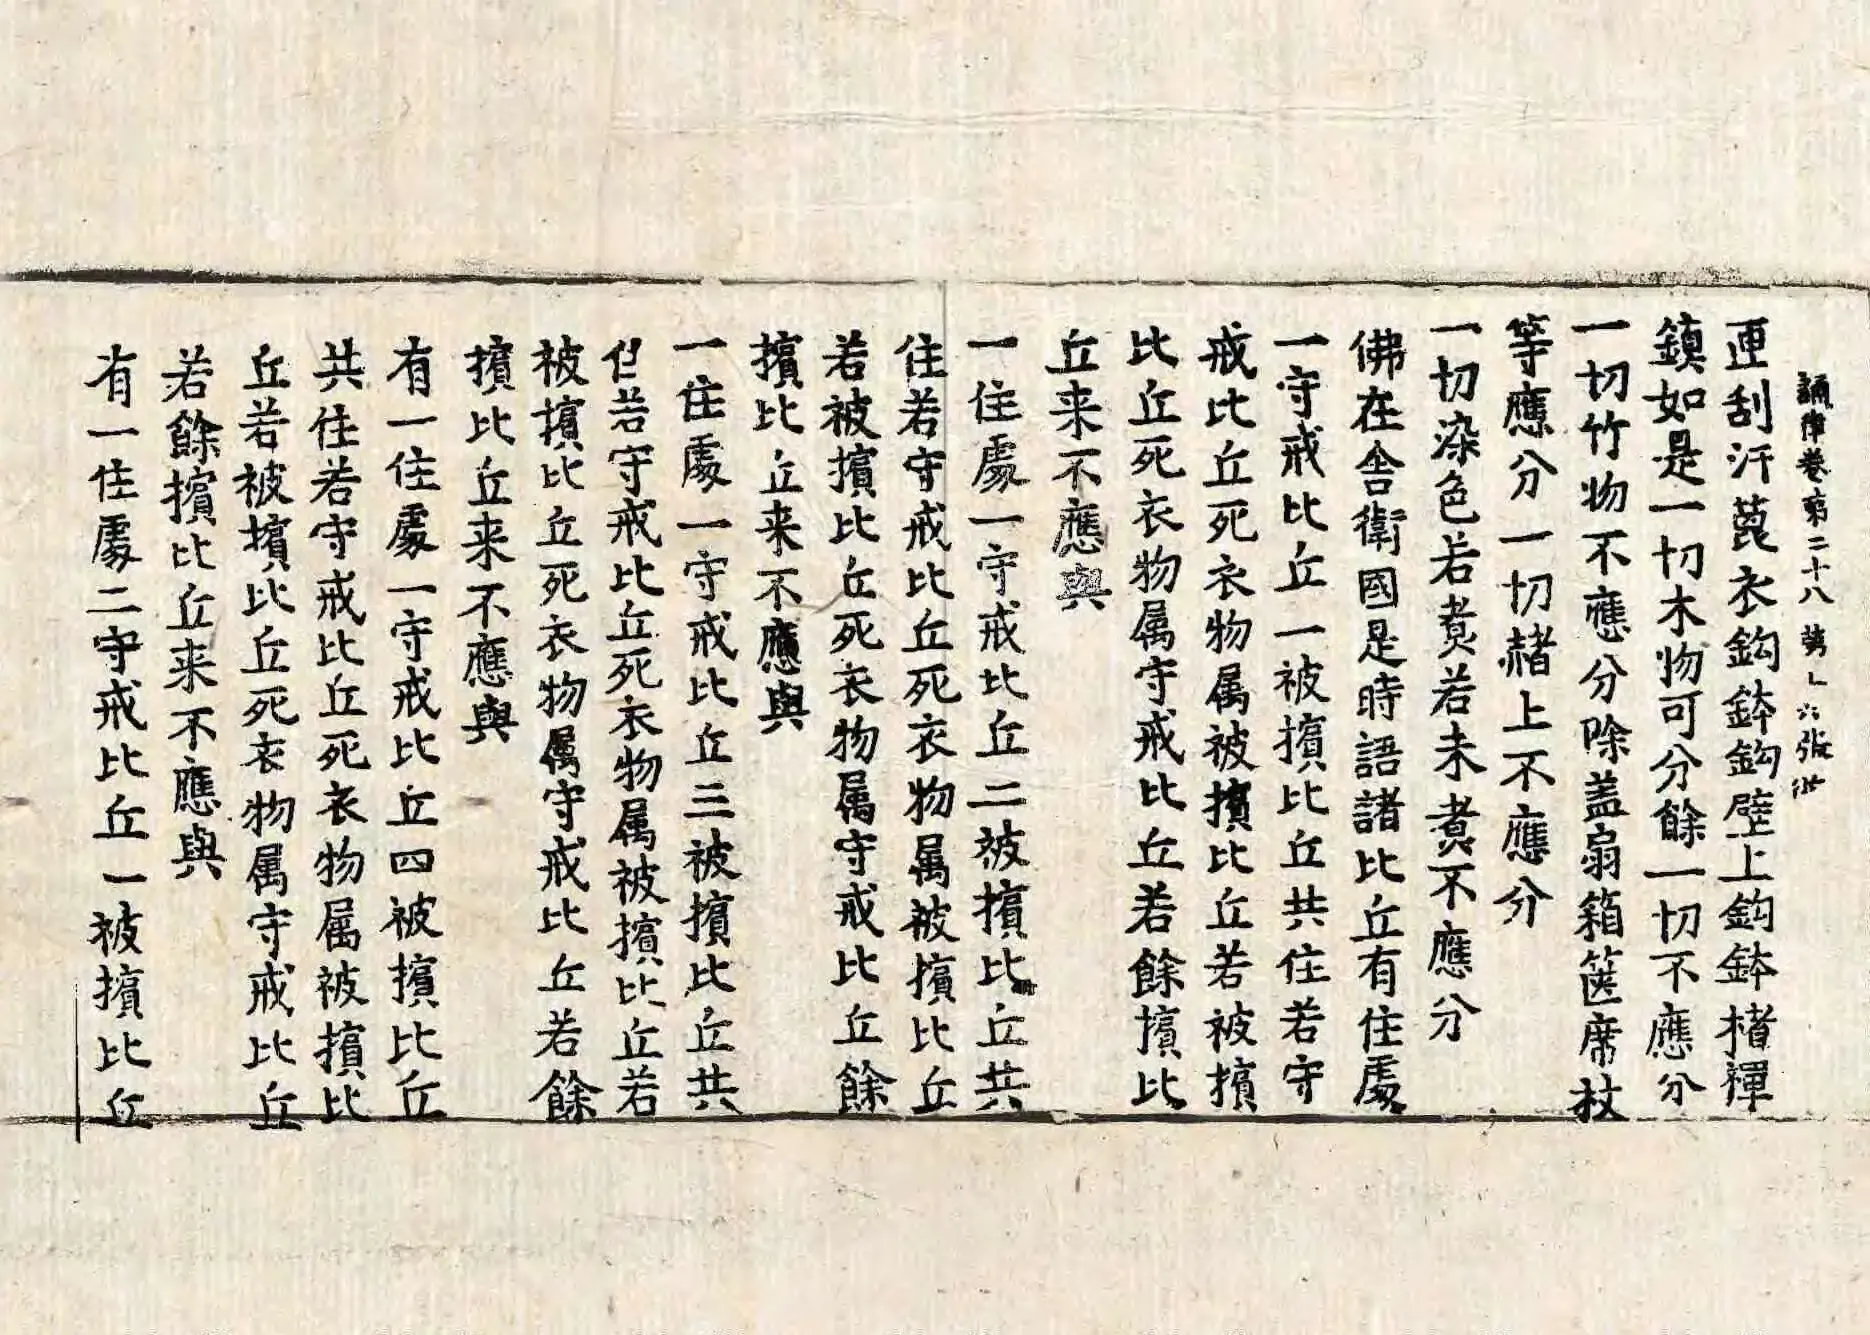 誦律卷第二十八 第 六張
匣刮汗蓖衣鈎鉢鈎壁上鈎鉢楮禪
鎮如是一切木物可分餘一切不應分
一切竹物不應分除盖扇箱箧席杖
等應分一切赭上不應分
一切染色若煮若未煮不應分
佛在舎衛國是時語諸比丘有住處
一守戒比丘一被擯比丘共住若守
戒比丘死衣物属被擯比丘若被擯
比丘死衣物属守戒比丘若餘擯比
丘来不應與
一住處一守戒比丘二被擯比丘共
住若守戒比丘死衣物属被擯比丘
若被擯比丘死衣物属守戒比丘餘
擯比丘来不應與
一住處一守戒比丘三被擯比丘共
住若守戒比丘死衣物属被擯比丘若
被擯比丘死衣物属守戒比丘若餘
擯比丘来不應與
有一住處一守戒比丘四被擯比丘
共住若守戒比丘死衣物属被擯比
丘若被擯比丘死衣物属守戒比丘
若餘擯比丘来不應與
有一住處二守戒比丘一被擯比丘